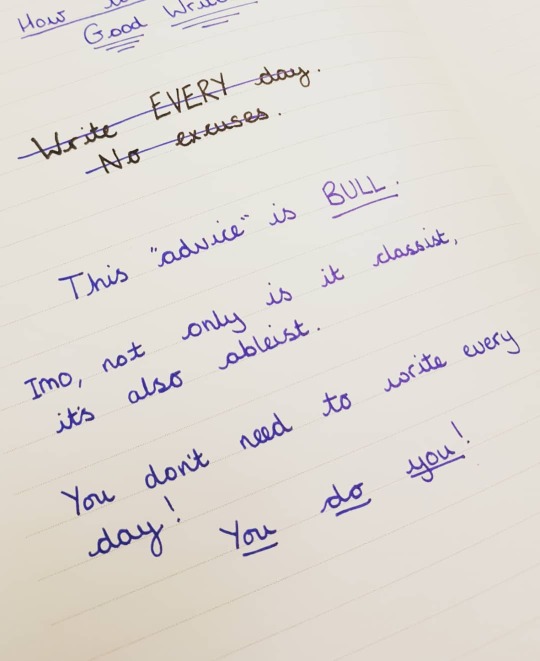 How
Good
Write EVERY day.
No excuses.
This "advice" is BULL.
Imo, not only is it classist,
it's also ableist.
You don't need to write every
day!
You do you!